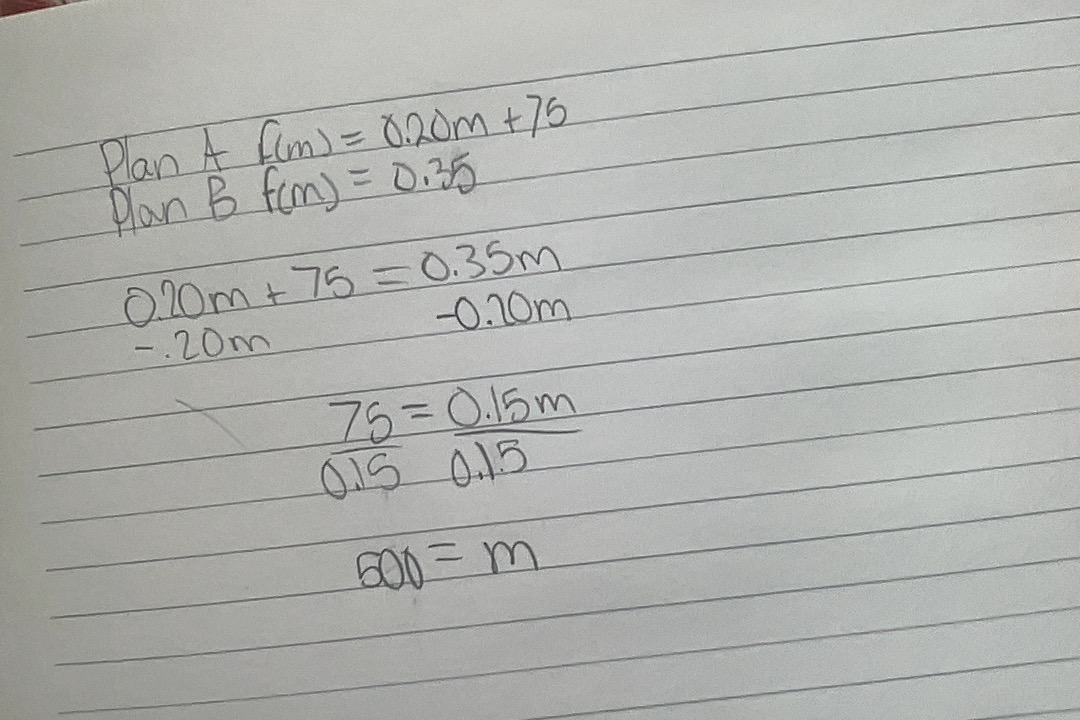 Plan A f(m) = 0.20m + 75
Plan B f(m) = 0.35
0.20m + 75 = 0.35m
-.20m -0.20m
75 = 0.15m
0.15 0.15
500 = m